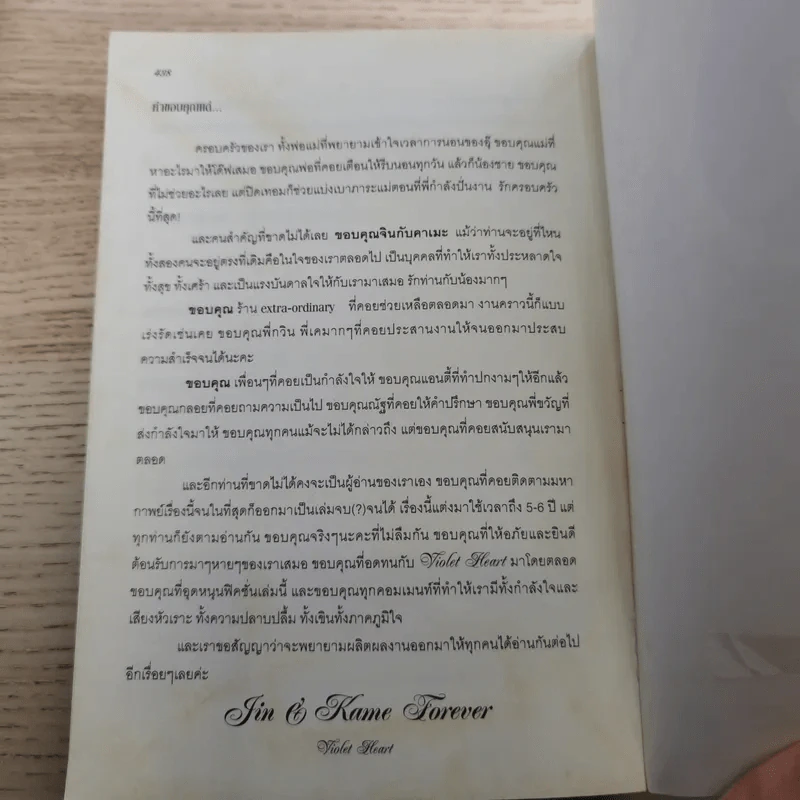 438
คำขอบคุณแด่...
ครอบครัวของเรา ทั้งพ่อแม่ที่พยายามเข้าใจเวลาการนอนของอุ๊ ขอบคุณแม่ที่
หาอะไรมาให้โด๊ฟเสมอ ขอบคุณพ่อที่คอยเตือนให้รีบนอนทุกวัน แล้วก็น้องชาย ขอบคุณ
ที่ไม่ช่วยอะไรเลย แต่ปิดเทอมก็ช่วยแบ่งเบาภาระแม่ตอนที่พี่กำลังปั่นงาน รักครอบครัว
นี้ที่สุด!
และคนสำคัญที่ขาดไม่ได้เลย ขอบคุณจินกับคาเมะ แม้ว่าท่านจะอยู่ที่ไหน
ทั้งสองคนจะอยู่ตรงที่เดิมคือในใจของเราตลอดไป เป็นบุคคลที่ทำให้เราทั้งประหลาดใจ
ทั้งสุข ทั้งเศร้า และเป็นแรงบันดาลใจให้กับเรามาเสมอ รักท่านกับน้องมากๆ
ขอบคุณ ร้าน extra-ordinary ที่คอยช่วยเหลือตลอดมา งานคราวนี้ก็แบบ
เร่งรัดเช่นเคย ขอบคุณพี่กวิน พี่เคมากๆที่คอยประสานงานให้จนออกมาประสบ
ความสำเร็จจนได้นะคะ
ขอบคุณ เพื่อนๆที่คอยเป็นกำลังใจให้ ขอบคุณแอนตี้ที่ทำปกงามๆให้อีกแล้ว
ขอบคุณกลอยที่คอยถามความเป็นไป ขอบคุณณัฐที่คอยให้คำปรึกษา ขอบคุณพี่ขวัญที่
ส่งกำลังใจมาให้ ขอบคุณทุกคนแม้จะไม่ได้กล่าวถึง แต่ขอบคุณที่คอยสนับสนุนเรามา
ตลอด
และอีกท่านที่ขาดไม่ได้คงจะเป็นผู้อ่านของเราเอง ขอบคุณที่คอยติดตามมหา
กาพย์เรื่องนี้จนในที่สุดก็ออกมาเป็นเล่มจบ(?)จนได้ เรื่องนี้แต่งมาใช้เวลาถึง 5-6 ปี แต่
ทุกท่านก็ยังตามอ่านกัน ขอบคุณจริงๆนะคะที่ไม่ลืมกัน ขอบคุณที่ให้อภัยและยินดี
ต้อนรับการมาๆหายๆของเราเสมอ ขอบคุณที่อดทนกับ Violet Heart มาโดยตลอด
ขอบคุณที่อุดหนุนฟิคชั่นเล่มนี้ และขอบคุณทุกคอมเมนท์ที่ทำให้เรามีทั้งกำลังใจและ
เสียงหัวเราะ ทั้งความปลาบปลื้ม ทั้งเขินทั้งภาคภูมิใจ
และเราขอสัญญาว่าจะพยายามผลิตผลงานออกมาให้ทุกคนได้อ่านกันต่อไป
อีกเรื่อยๆเลยค่ะ
Jin & Kame Forever
Violet Heart